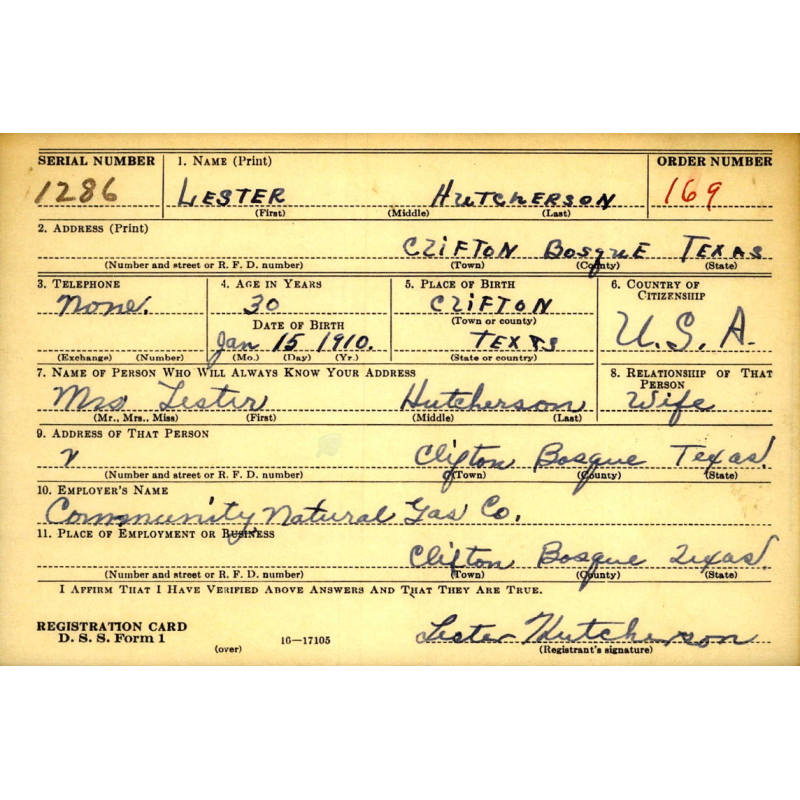 SERIAL NUMBER 1. NAME (Print) ORDER NUMBER
1286 LESTER HUTCHERSON 169
(First) (Middle) (Last)
2. ADDRESS (Print)
CLIFTON BOSQUE TEXAS
(Number and street or R. F. D. number) (Town) (County) (State)
3. TELEPHONE 4. AGE IN YEARS 5. PLACE OF BIRTH 6. COUNTRY OF CITIZENSHIP
None. 30 CLIFTON
DATE OF BIRTH (Town or county)
Jan 15 1910. TEXAS U.S.A.
(Exchange) (Number) (Mo.) (Day) (Yr.) (State or country)
7. NAME OF PERSON WHO WILL ALWAYS KNOW YOUR ADDRESS 8. RELATIONSHIP OF THAT PERSON
Mrs Lester Hutcherson Wife
(Mr., Mrs., Miss) (First) (Middle) (Last)
9. ADDRESS OF THAT PERSON
Clifton Bosque Texas
(Number and street or R. F. D. number) (Town) (County) (State)
10. EMPLOYER'S NAME
Community Natural Gas Co.
11. PLACE OF EMPLOYMENT OR BUSINESS
Clifton Bosque Texas
(Number and street or R. F. D. number) (Town) (County) (State)
I AFFIRM THAT I HAVE VERIFIED ABOVE ANSWERS AND THAT THEY ARE TRUE.
REGISTRATION CARD
D. S. S. Form 1 (over) 16—17105 Lester Hutcherson
(Registrant's signature)